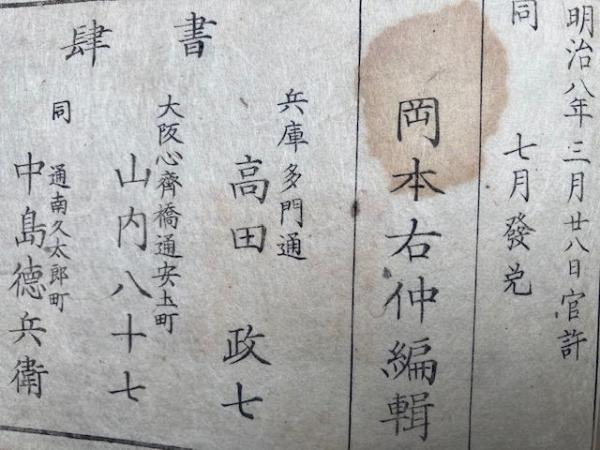 明治八年三月廿八日官許
同 七月發兌
岡本右仲編輯
書肆
兵庫多門通
高田 政七
大阪心齊橋通安土町
山内八十七
同 通南久太郎町
中島德兵衛